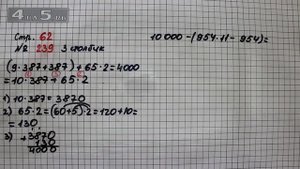 4 5.
Стр. 62
№ 239 3 столбик
(9·387+387)+65·2=4000
=10·387+65·2
1) 10·387=3870
2) 65·2=(60+5)·2=120+10=
=130
3) +3870
130
4000
10 000-(954·11-954)=